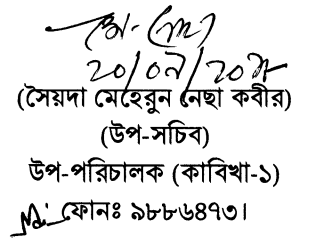 ২০/০৯/২০১৮
(সৈয়দা মেহেরুন নেছা কবীর)
(উপ-সচিব)
উপ-পরিচালক (কাবিখা-১)
ফোনঃ ৯৮৮৬৪৭৩।